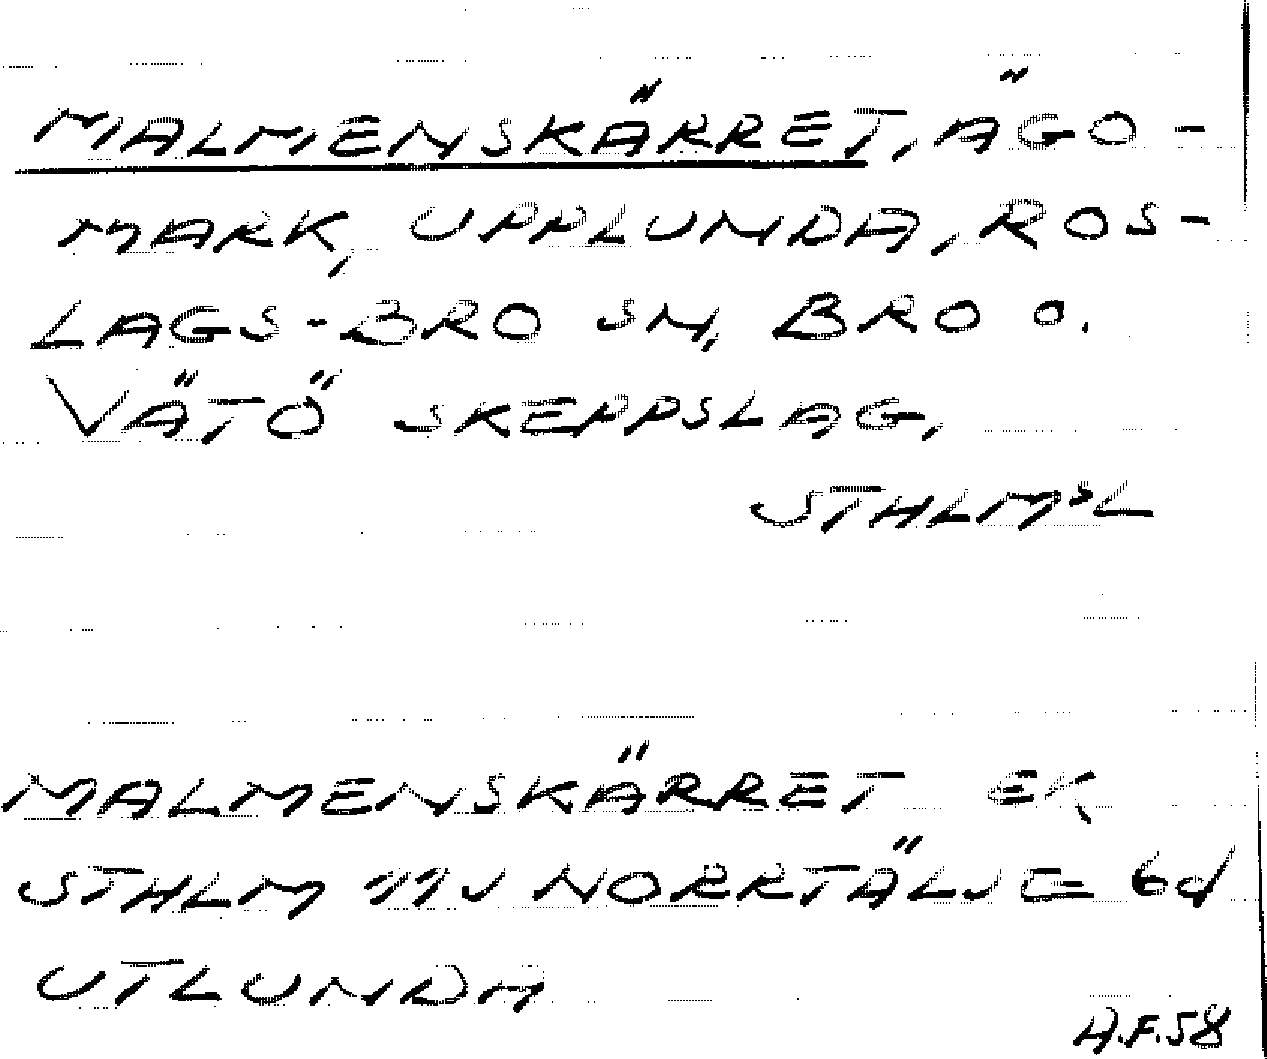 MALMENSKÄRRET, ÄGO-
MARK, UPPLUNDA, ROS-
LAGS-BRO SN, BRO O.
VÄTÖ SKEPPSLAG,
STHLMˢL
MALMENSKÄRRET EK
STHLM 11J NORRTÄLJE 6d
UTLUNDA
A.F.58